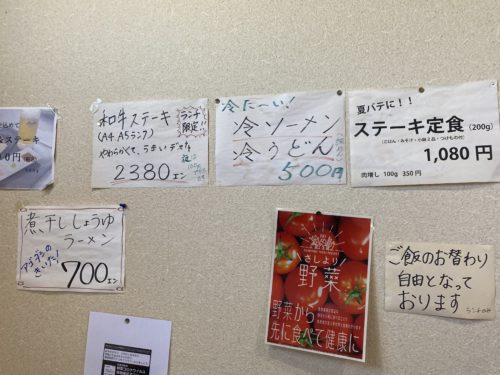 ステーキ
和牛ステーキ
(A4.A5ランク)
ランチ
限定!!
やわらかくて、うまいデス!!
2380エン
冷た〜い!
冷ソーメン
冷うどん
500円
夏バテに!!
ステーキ定食 (200g)
(ごはん・みそ汁・小鉢2品・つけもの付)
1,080円
肉増し 100g 350円
煮干ししょうゆ
ラーメン
アゴダシの
きいた!
700エン
さしより
野菜
野菜から
先に食べて健康に
ご飯のお替わり
自由となって
おります
ランチのみ
新型コロナウイルス